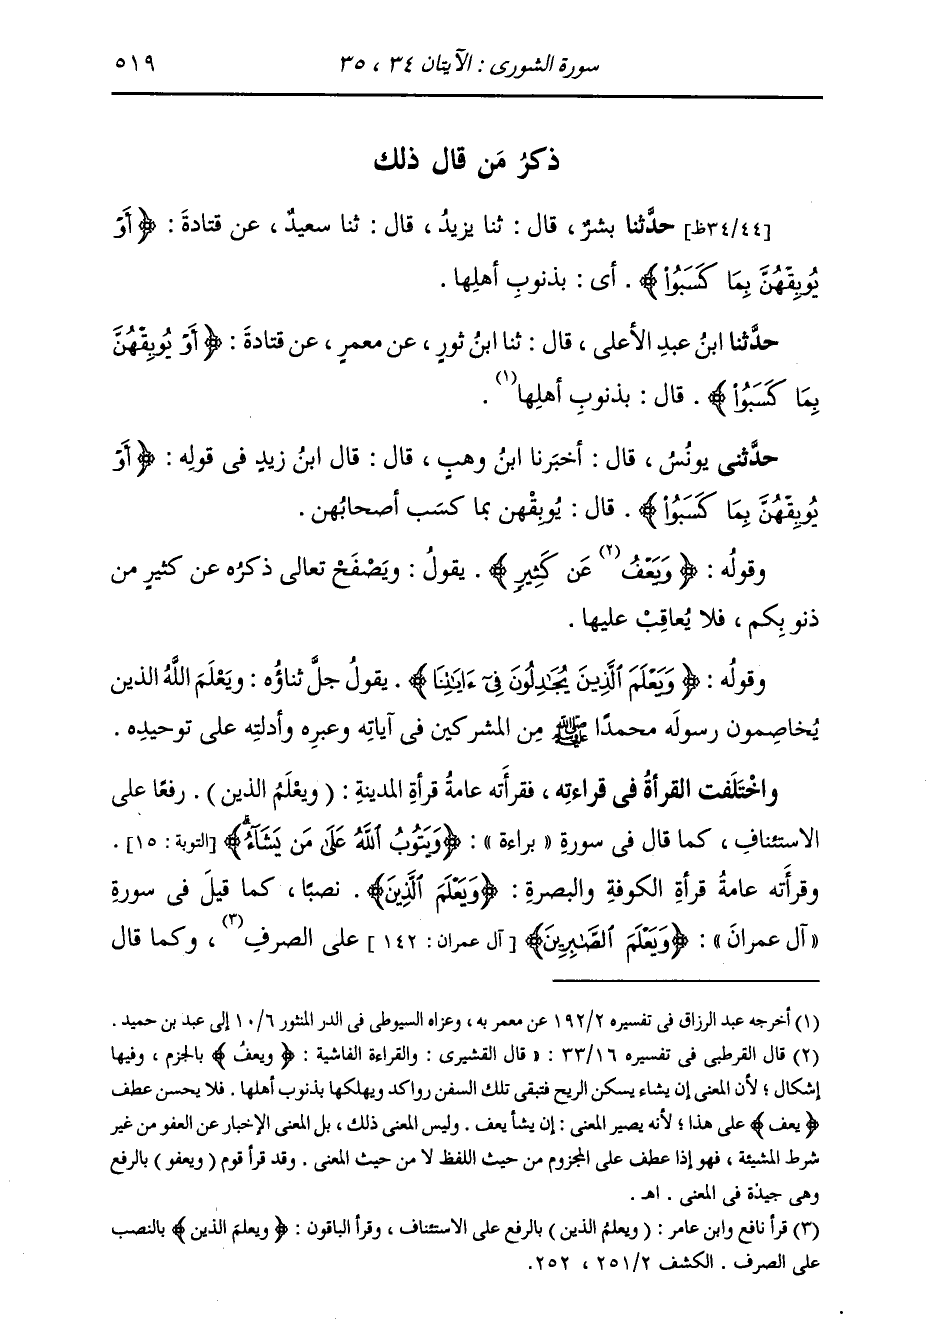 سورة الشورى : الآيتان ٣٤ ، ٣٥
٥١٩
ذكرُ مَن قال ذلك
[٣٤/٤٤ظ] حدَّثنا بشرٌ ، قال : ثنا يزيدُ ، قال : ثنا سعيدٌ ، عن قتادةَ : ﴿ أَوْ
يُوبِقْهُنَّ بِمَا كَسَبُوا۟ ﴾ . أى : بذنوبِ أهلِها .
حدَّثنا ابنُ عبدِ الأعلى ، قال : ثنا ابنُ ثورٍ ، عن معمرٍ ، عن قتادةَ : ﴿ أَوْ يُوبِقْهُنَّ
بِمَا كَسَبُوا۟ ﴾ . قال : بذنوبِ أهلِها(١) .
حدَّثنى يونُسُ ، قال : أخبَرنا ابنُ وهبٍ ، قال : قال ابنُ زيدٍ فى قولِه : ﴿ أَوْ
يُوبِقْهُنَّ بِمَا كَسَبُوا۟ ﴾ . قال : يُوبِقْهن بما كسَب أصحابُهن .
وقولُه : ﴿ وَيَعْفُ(٢) عَن كَثِيرٍ ﴾ . يقولُ : ويَصْفَحْ تعالى ذكرُه عن كثيرٍ من
ذنوبِكم ، فلا يُعاقِبْ عليها .
وقولُه : ﴿ وَيَعْلَمَ ٱلَّذِينَ يُجَـٰدِلُونَ فِىٓ ءَايَـٰتِنَا ﴾ . يقولُ جلَّ ثناؤُه : ويَعْلَمَ اللَّهُ الذين
يُخاصِمون رسولَه محمدًا ﷺ مِن المشركين فى آياتِه وعبرِه وأدلتِه على توحيدِه .
واخْتَلَفت القرأةُ فى قراءتِه ، فقرأَته عامةُ قرأةِ المدينةِ : ( ويعْلَمُ الذين ) . رفعًا على
الاستئنافِ ، كما قال فى سورةِ « براءة » : ﴿وَيَتُوبُ ٱللَّهُ عَلَىٰ مَن يَشَآءُ﴾ [التوبة : ١٥] .
وقرأَته عامةُ قرأةِ الكوفةِ والبصرةِ : ﴿وَيَعْلَمَ ٱلَّذِينَ﴾ . نصبًا ، كما قيلَ فى سورةِ
« آل عمرانَ » : ﴿وَيَعْلَمَ ٱلصَّـٰبِرِينَ﴾ [ آل عمران : ١٤٢ ] على الصرفِ(٣) ، وكما قال
(١) أخرجه عبد الرزاق فى تفسيره ١٩٢/٢ عن معمر به ، وعزاه السيوطى فى الدر المنثور ١٠/٦ إلى عبد بن حميد .
(٢) قال القرطبى فى تفسيره ٣٣/١٦ : « قال القشيرى : والقراءة الفاشية : ﴿ ويعفُ ﴾ بالجزم ، وفيها
إشكال ؛ لأن المعنى إن يشاء يسكن الريح فتبقى تلك السفن رواكد ويهلكها بذنوب أهلها . فلا يحسن عطف
﴿ يعف ﴾ على هذا ؛ لأنه يصير المعنى : إن يشأ يعف . وليس المعنى ذلك ، بل المعنى الإخبار عن العفو من غير
شرط المشيئة ، فهو إذا عطف على المجزوم من حيث اللفظ لا من حيث المعنى . وقد قرأ قوم ( ويعفو ) بالرفع
وهى جيدة فى المعنى . اهـ .
(٣) قرأ نافع وابن عامر : ( ويعلمُ الذين ) بالرفع على الاستئناف ، وقرأ الباقون : ﴿ ويعلمَ الذين ﴾ بالنصب
على الصرف . الكشف ٢٥١/٢ ، ٢٥٢.